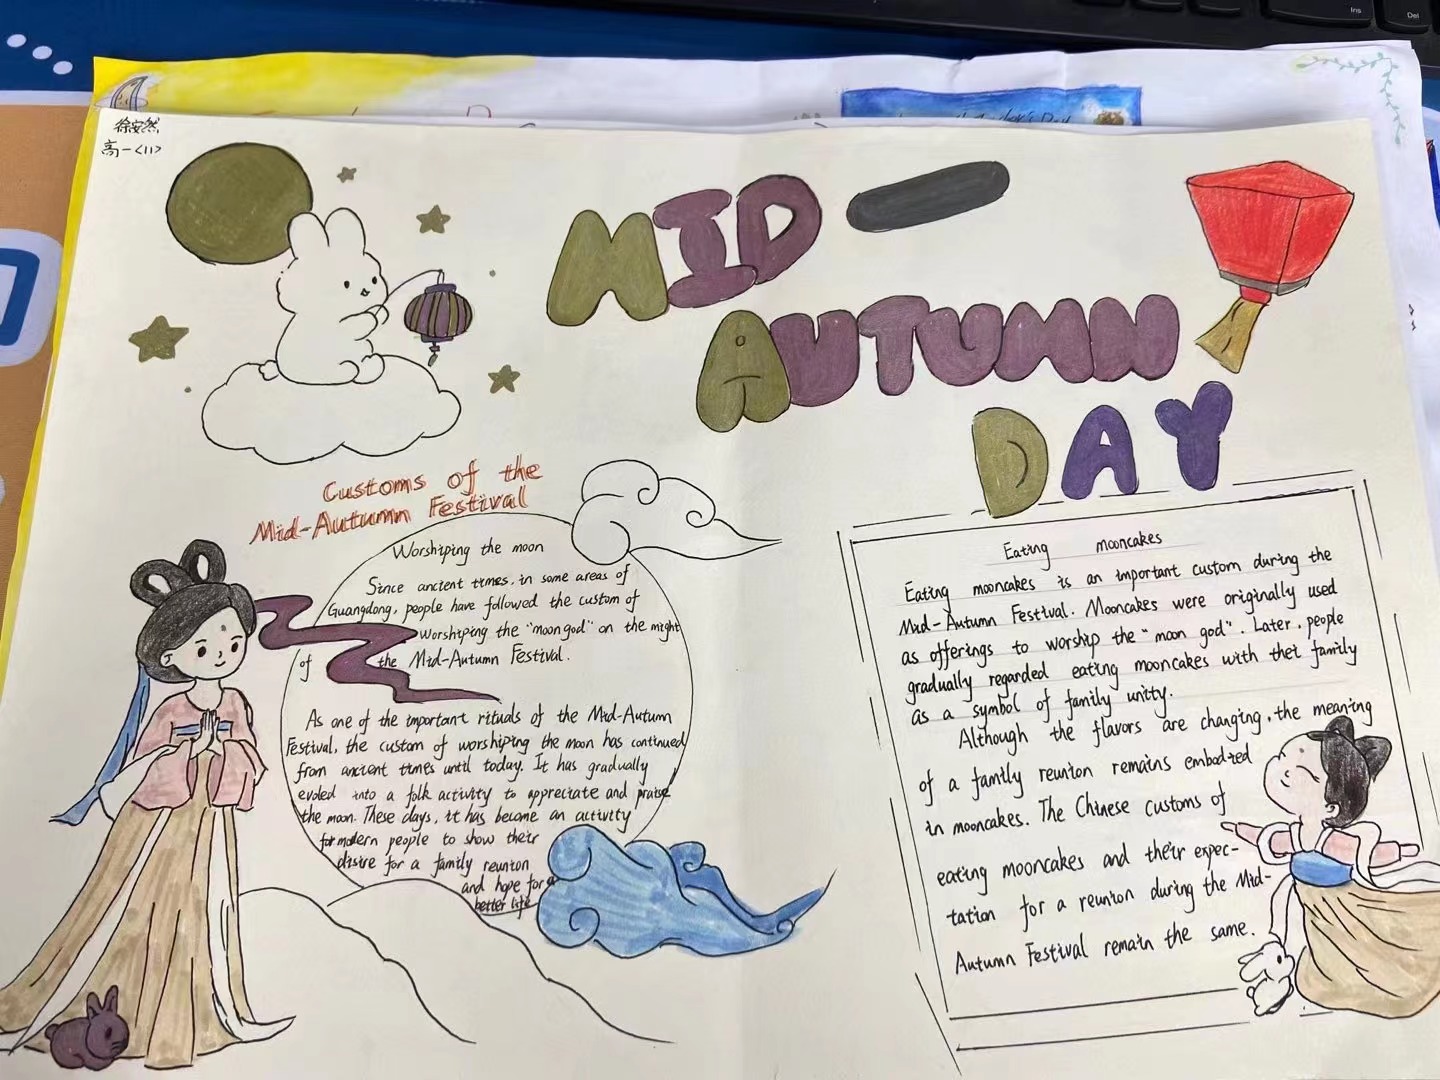 徐安然
高一<11>
MID-
AUTUMN
DAY
Customs of the
Mid-Autumn Festival
Worshiping the moon
Since ancient times, in some areas of
Guangdong, people have followed the custom of
worshiping the "moongod" on the might
of the Mid-Autumn Festival.
As one of the important rituals of the Mid-Autumn
Festival, the custom of worshiping the moon has continued
from ancient times until today. It has gradually
evoled into a folk activity to appreciate and praise
the moon. These days, it has become an activity
for modern people to show their
desire for a family reunion
and hope for a
better life
Eating mooncakes
Eating mooncakes is an important custom during the
Mid-Autumn Festival. Mooncakes were originally used
as offerings to worship the "moon god". Later, people
gradually regarded eating mooncakes with their family
as a symbol of family unity.
Although the flavors are changing, the meaning
of a family reunion remains embodied
in mooncakes. The Chinese customs of
eating mooncakes and their expec-
tation for a reunion during the Mid-
Autumn Festival remain the same.
Ins
Del